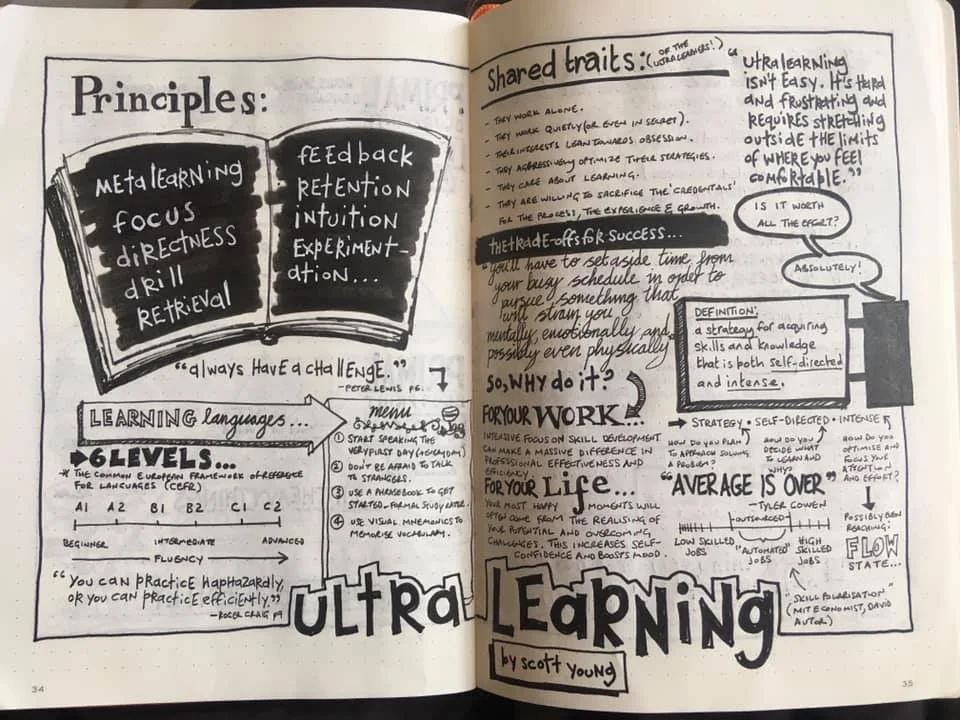 Principles:
Metalearning
focus
directness
drill
retrieval
feedback
retention
intuition
experiment-
ation...
"always have a challenge."
- Peter Lewis P6.
Learning languages...
6 levels...
* The Common European Framework of Reference
for Languages (CEFR)
A1 A2 B1 B2 C1 C2
Beginner Intermediate Advanced
Fluency
"You can practice haphazardly,
or you can practice efficiently."
- Roger Craig P9
menu
1 Start speaking the
very first day (everyday)
2 Don't be afraid to talk
to strangers.
3 Use a phrasebook to get
started - formal study later.
4 Use visual mnemonics to
memorise vocabulary.
34
Shared traits: (of the
ultralearners!)
- They work alone.
- They work quietly (or even in secret).
- Their interests lean towards obsession.
- They aggressively optimize their strategies.
- They care about learning.
- They are willing to sacrifice the 'credentials'
for the process, the experience & growth.
"Ultralearning
isn't easy. It's hard
and frustrating and
requires stretching
outside the limits
of where you feel
comfortable."
Is it worth
all the effort?
Absolutely!
the trade-offs for success...
"you'll have to set aside time from
your busy schedule in order to
pursue something that
will strain you
mentally, emotionally and
possibly even physically
Definition:
a strategy for acquiring
skills and knowledge
that is both self-directed
and intense.
So, why do it?
For your work...
Intensive focus on skill development
can make a massive difference in
professional effectiveness and
efficiency.
For your Life...
Your most happy moments will
often come from the realising of
your potential and overcoming
challenges. This increases self-
confidence and boosts mood.
Strategy • Self-directed • Intense
How do you plan
to approach solving
a problem?
How do you
decide what
to learn and
why?
How do you
optimise and
focus your
attention
and effort?
Possibly even
reaching:
FLOW
state...
"Average is over"
- Tyler Cowen
outsourced
Low skilled
jobs
"Automated"
jobs
High
skilled
jobs
"Skill polarisation"
(MIT economist, David
Autor)
Ultra Learning
by Scott Young
35